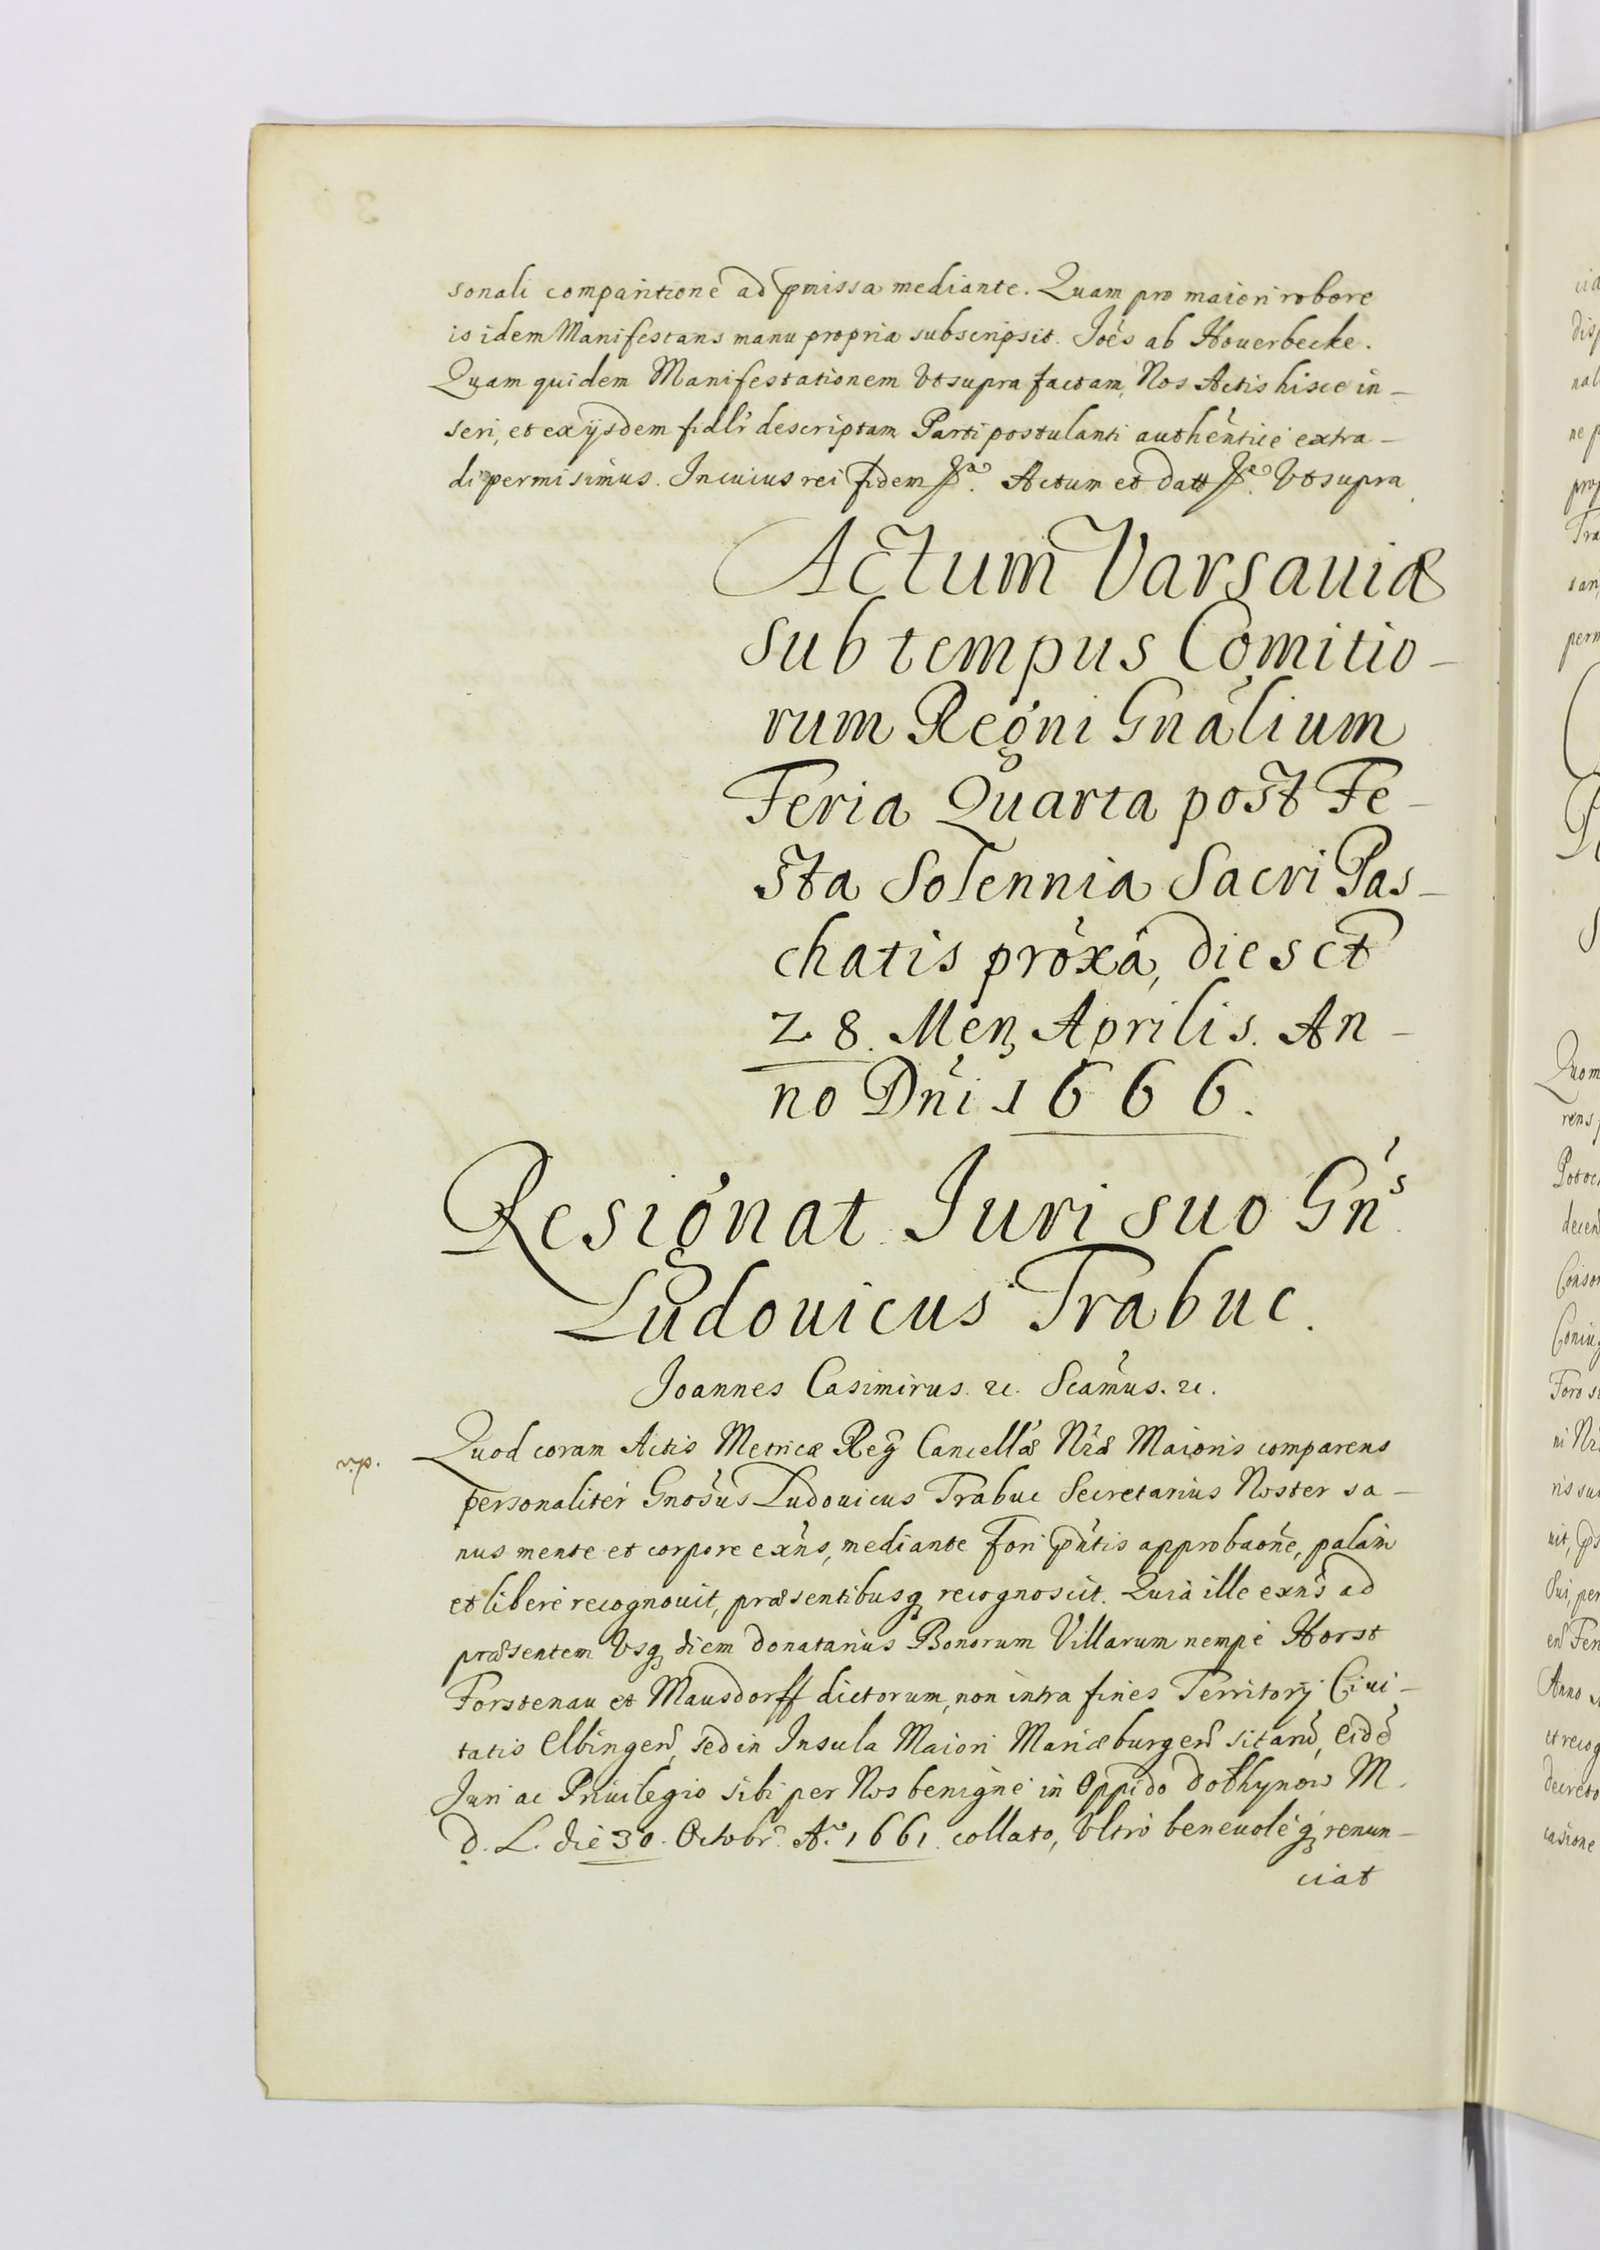 sonali comparitione ad pmissa mediante. Quam pro maiori robore
is idem Manifestans manu propria subscripsit. Joes ab Houerbecke.
Quam quidem Manifestationem Vtsupra factam, Nos Actis hisce in-
seri, et ex ijsdem fidlr descriptam Parti postulanti authentice extra-
di permisimus. In cuius rei fidem Actum et datt Vtsupra
Actum Varsauiæ
sub tempus Comitio-
rum Regni Gnalium
Feria Quarta post Fe-
sta Solennia Sacri Pas-
chatis proxa, die sct
28. Men Aprilis. An-
no Dni 1666.
Resignat Juri suo Gns
Ludouicus Trabuc.
Joannes Casimirus. &c. Scamus. &c.
Quod coram Actis Metricæ Reg Cancellæ Nræ Maioris comparens
personaliter Gnosus Ludouicus Trabuc Secretarius Noster sa-
nus mente et corpore exns, mediante fori pntis approbaone, palam
et libere recognouit, præsentibusq recognoscit. Quia ille exns ad
præsentem Vsq diem donatarius Bonorum Villarum nempe Horst
Forstenau et Mausdorff dictorum, non intra fines Territorij Ciui-
tatis Elbingen, sed in Insula Maiori Mariæburgen sitaru, eide
Juri ac Priuilegio sibi per Nos benigne in Oppido dolhynow M.
d. L. die 30. Octobr. Ao. 1661. collato, Vltro beneuole q renun-
ciat